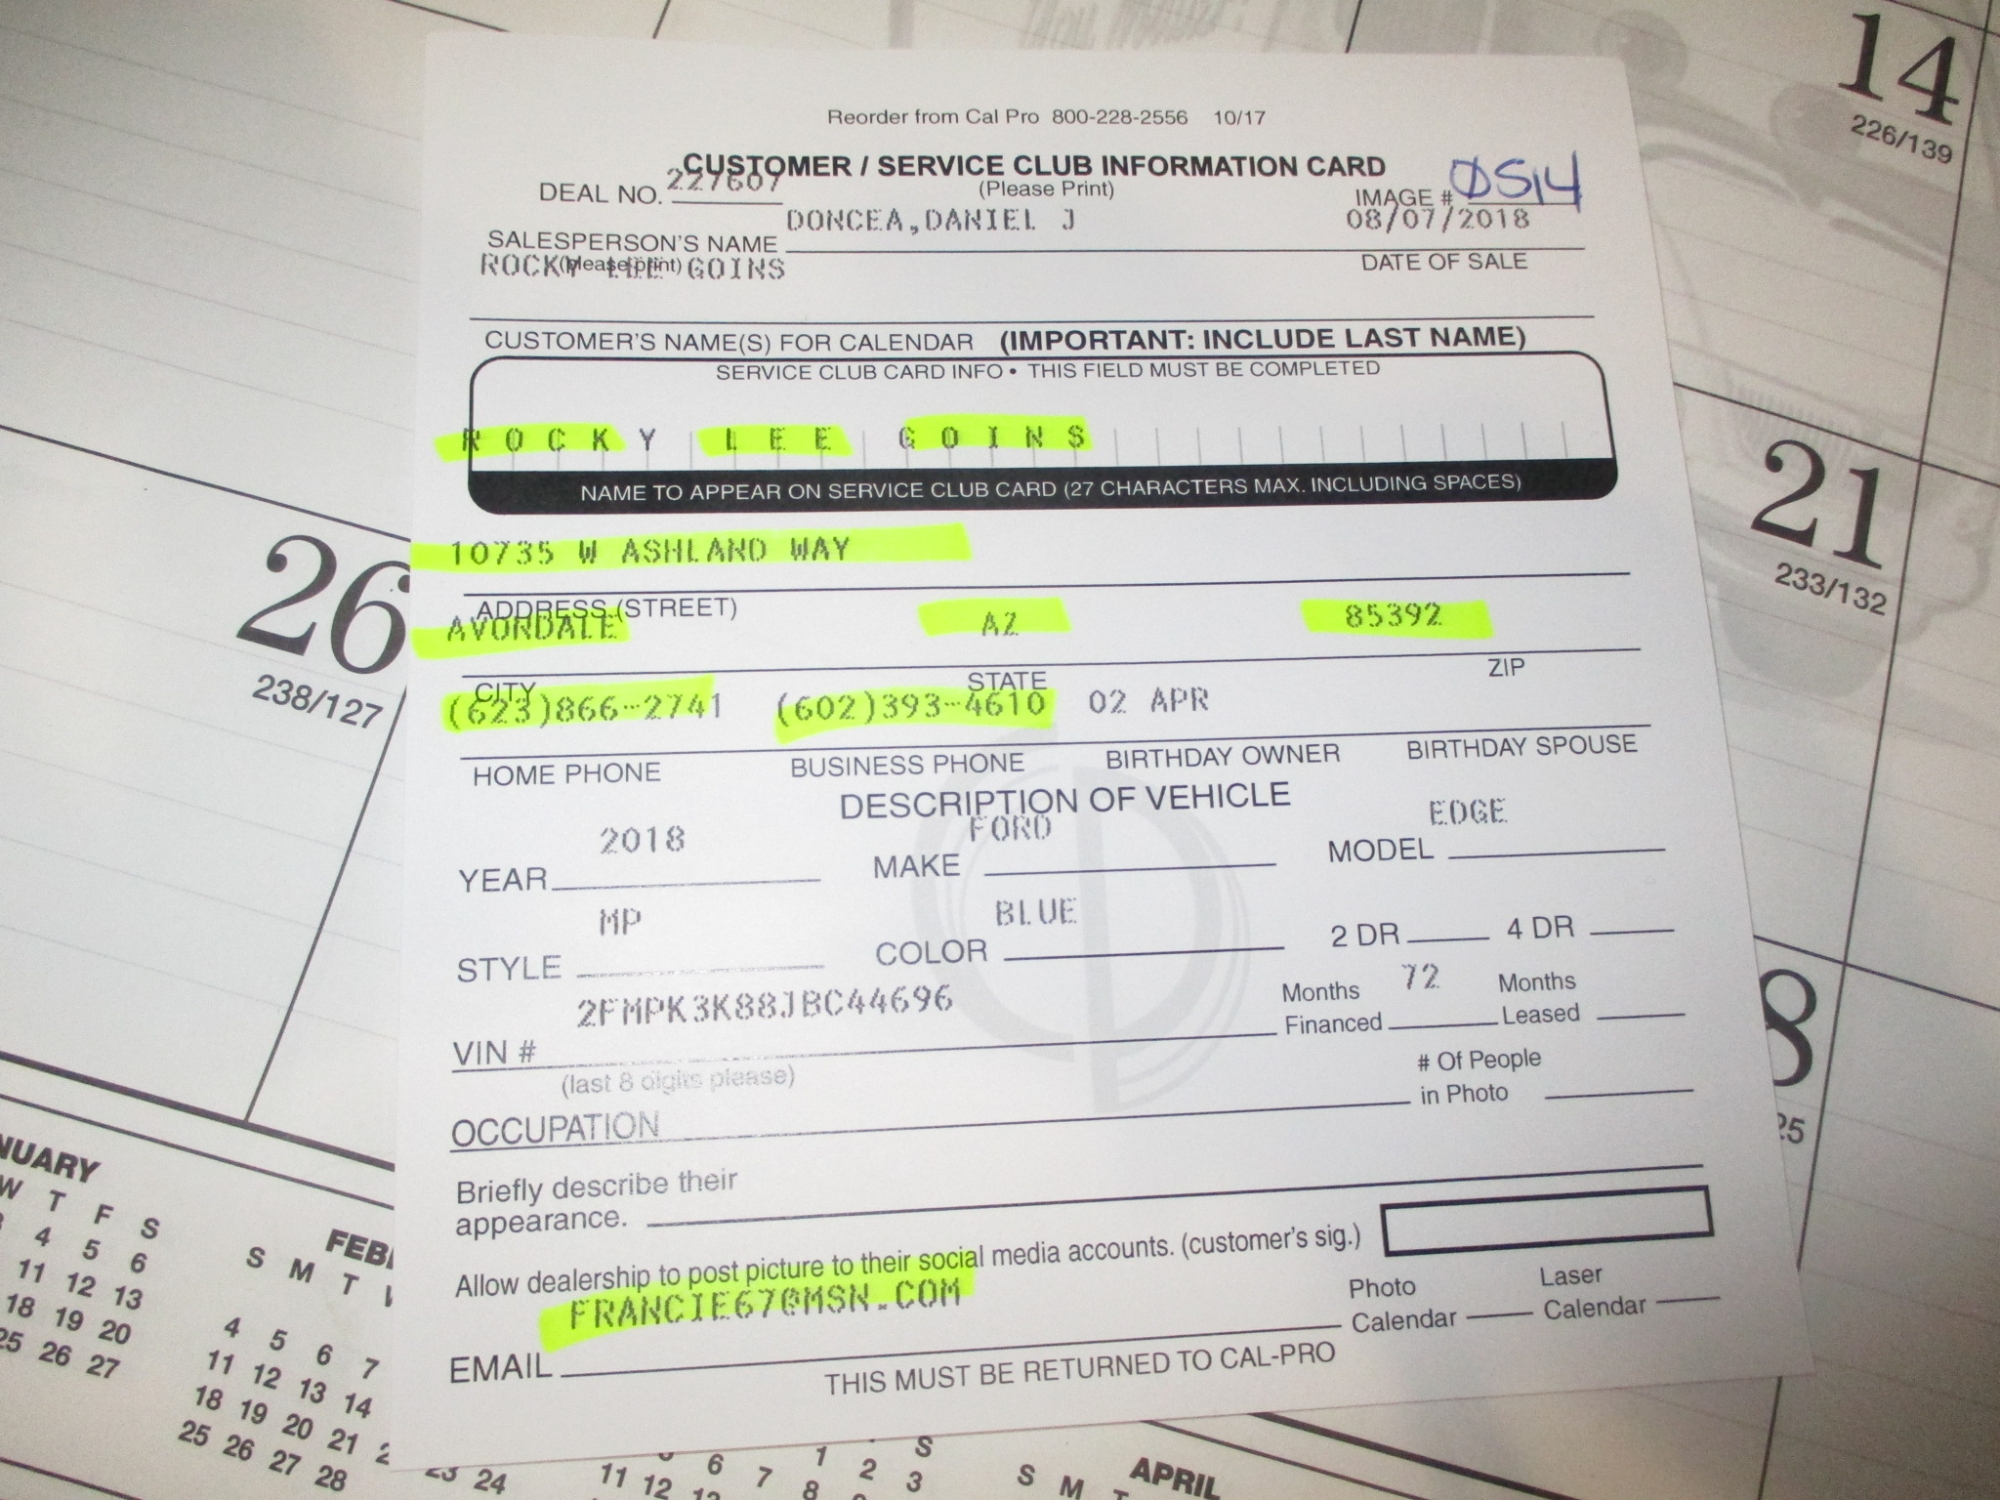 Reorder from Cal Pro 800-228-2556 10/17
CUSTOMER / SERVICE CLUB INFORMATION CARD
(Please Print)
DEAL NO. 227607
IMAGE # 0514
DONCEA,DANIEL J 08/07/2018
SALESPERSON'S NAME
(please print)
DATE OF SALE
ROCKY LEE GOINS
CUSTOMER'S NAME(S) FOR CALENDAR (IMPORTANT: INCLUDE LAST NAME)
SERVICE CLUB CARD INFO • THIS FIELD MUST BE COMPLETED
ROCKY LEE GOINS
NAME TO APPEAR ON SERVICE CLUB CARD (27 CHARACTERS MAX. INCLUDING SPACES)
10735 W ASHLAND WAY
ADDRESS (STREET)
AVONDALE AZ 85392
CITY STATE ZIP
(623)866-2741 (602)393-4610 02 APR
HOME PHONE BUSINESS PHONE BIRTHDAY OWNER BIRTHDAY SPOUSE
DESCRIPTION OF VEHICLE
2018 FORD EDGE
YEAR MAKE MODEL
MP BLUE
STYLE COLOR 2 DR 4 DR
2FMPK3K88JBC44696
VIN #
(last 8 digits please)
Months Financed 72 Months Leased
OCCUPATION
# Of People in Photo
Briefly describe their
appearance.
Allow dealership to post picture to their social media accounts. (customer's sig.)
FRANCIE67@MSN.COM
EMAIL
Photo Calendar
Laser Calendar
THIS MUST BE RETURNED TO CAL-PRO
14
226/139
21
233/132
26
238/127
8
25
NUARY
W T F S
4 5 6
11 12 13
18 19 20
25 26 27
FEB
S M T
4 5 6 7
11 12 13 14
18 19 20 21
25 26 27 28
24
11 12
6 7
1 8
2
S
3
APRIL
S M T